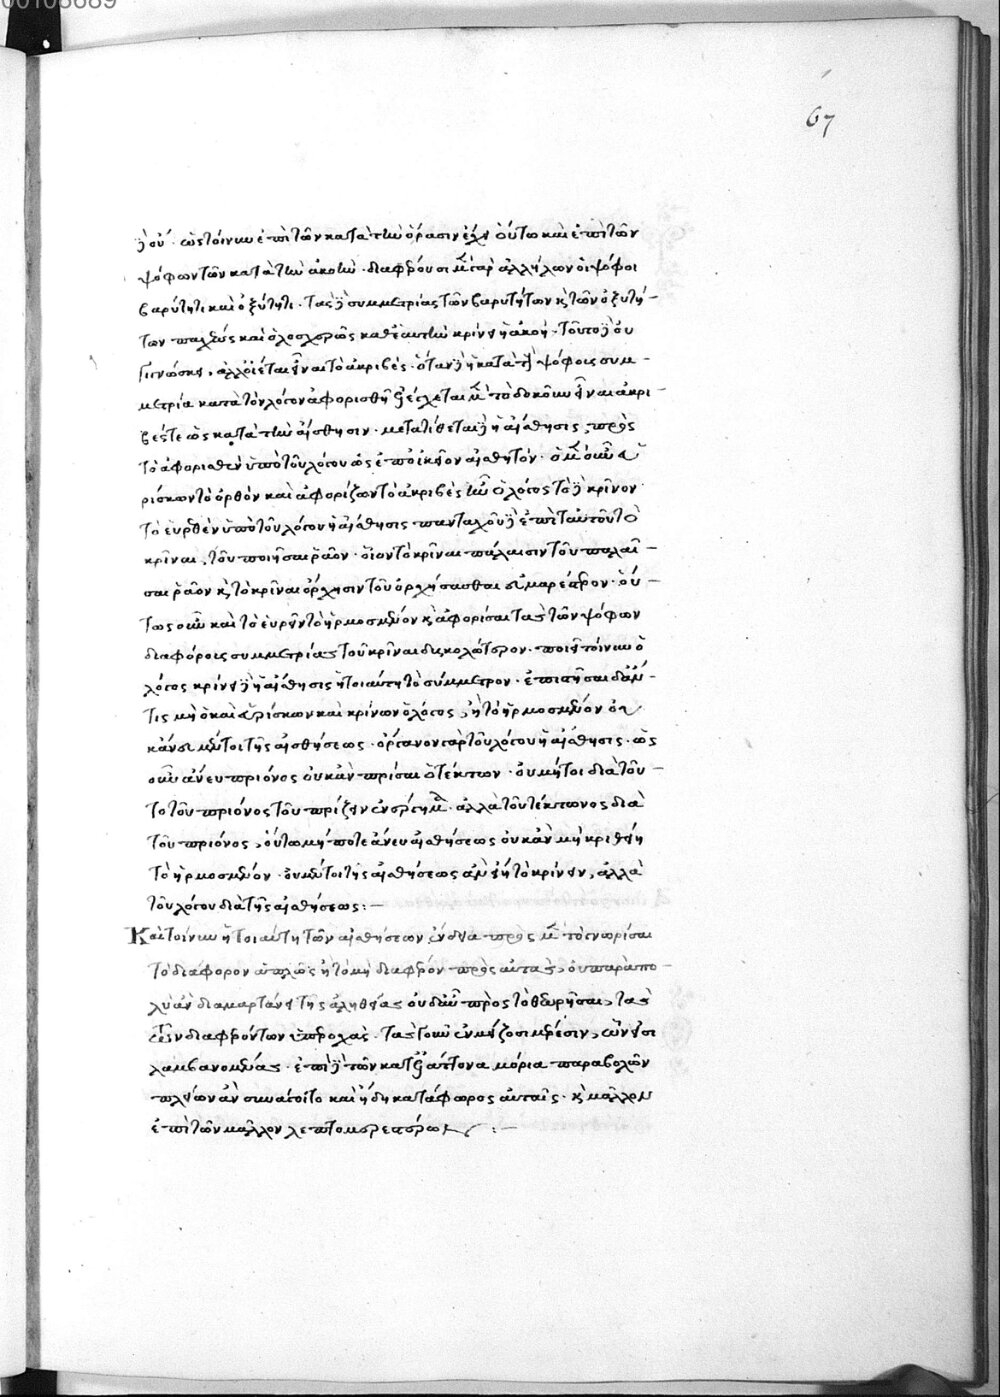 00108689
67
δὲ οὔ. ὡς τοίνυν ἐπὶ τῶν κατὰ τὴν ὅρασιν ἔχει οὕτω καὶ ἐπὶ τῶν
ψόφων τῶν κατὰ τὴν ἀκοήν. διαφέρουσι μὲν γὰρ ἀλλήλων οἱ ψόφοι
βαρύτητι καὶ ὀξύτητι. τὰς δὲ συμμετρίας τῶν βαρυτήτων καὶ τῶν ὀξυτή-
των παχέως καὶ ὁλοσχερῶς καθ' ἑαυτὴν κρίνει ἡ ἀκοή. τοῦτο δὲ οὐ
γινώσκει, ἀλλ' οἴεται εἶναι τὸ ἀκριβές. ὅταν δὲ ἡ κατὰ τοῖς ψόφοις συμ-
μετρία κατὰ τὸν λόγον ἀφορισθῇ ἐλέγχεται μὲν τὸ δοκοῦν εἶναι ἀκρι-
βές τε ὡς κατὰ τὴν αἴσθησιν. μετατίθεται δὲ ἡ αἴσθησις πρὸς
τὸ ἀφορισθὲν ὑπὸ τοῦ λόγου ὡς ἐπ' οἰκεῖον αἰσθητόν. ὁ μὲν οὖν εὑ
ρίσκων τὸ ὀρθὸν καὶ ἀφορίζων τὸ ἀκριβὲς ἦν ὁ λόγος τὸ δὲ κρῖνον
τὸ εὑρεθὲν ὑπὸ τοῦ λόγου ἡ αἴσθησις πανταχοῦ δὲ ἐπὶ ταὐτοῦ τὸ
κρῖναι, τοῦ ποιῆσαι ῥᾷον. οἷον τὸ κρῖναι πάλαισιν τοῦ παλαῖ-
σαι ῥᾷον καὶ τὸ κρῖναι ὄρχησιν τοῦ ὀρχήσασθαι εὐμαρέστερον. οὕ-
τως οὖν καὶ τὸ εὑρεῖν τὸ ἡρμοσμένον καὶ ἀφορίσαι τὰς τῶν ψόφων
διαφόροις συμμετρίας τοῦ κρῖναι δυσκολώτερον. ποιεῖ τοίνυν ὁ
λόγος κρίνει δὲ ἡ αἴσθησις ἡ τοιαύτη τὸ σύμμετρον. ἐπιστῆσαι δ' ἄν
τις μὴ ὁ καὶ εὑρίσκων καὶ κρίνων ὁ λόγος, ἢ τὸ ἡρμοσμένον
κἂν μέντοι τῆς αἰσθήσεως. ὄργανον γὰρ τοῦ λόγου ἡ αἴσθησις. ὡς
οὖν ἄνευ πρίονος οὐκ ἂν πρίσαι ὁ τέκτων. οὐ μήτοι διὰ τοῦ-
το τοῦ πρίονος τοῦ πρίζειν ἐνεργεῖν. ἀλλὰ τοῦ τέκτωνος διὰ
τοῦ πρίονος, οὕτω μήποτε ἄνευ αἰσθήσεως οὐκ ἂν μὴ κριθείη
τὸ ἡρμοσμένον. οὐ μέντοι τῆς αἰσθήσεως ἂν εἴη τὸ κρίνειν, ἀλλὰ
τοῦ λόγου διὰ τῆς αἰσθήσεως:-
Καὶ τοίνυν ἡ τοιαύτη τῶν αἰσθήσεων ἔνδεια πρὸς μὲν τὸ γνωρίσαι
τὸ διάφορον ἁπλῶς ἢ τὸ μὴ διαφέρον πρὸς αὐτὰς, οὐ παρὰ πο-
λὺ ἂν διαμαρτάνει τῆς ἀληθείας οὐδ' αὖ πρὸς τὸ θεωρῆσαι, τὰς
τῶν διαφερόντων ὑπεροχὰς. τὰς γοῦν ἐν μείζοσι μέρεσιν, ὧν εἰσι
λαμβανομένας. ἐπὶ δὲ τῶν κατ' ἐλάττονα μόρια παραβολῶν
πλείων ἂν συνάγοιτο καὶ ἤδη κατάφωρος αὐταῖς. καὶ μᾶλλον
ἐπὶ τῶν μᾶλλον λεπτομερεστέρων :-